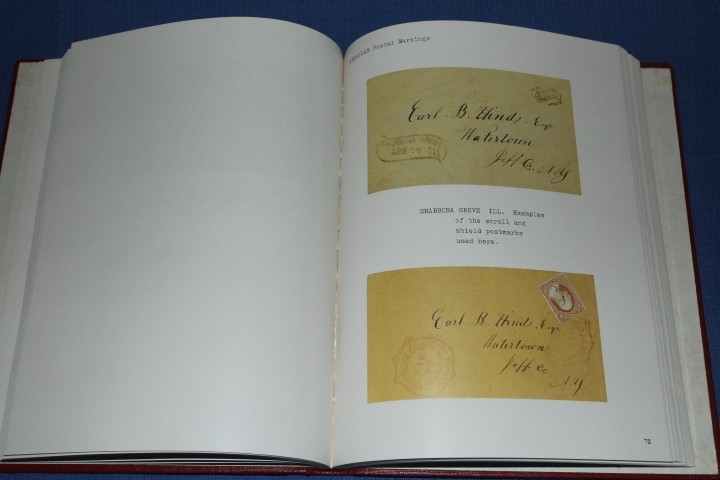 Postal Markings
Earl B. Hinds, Esqr
Watertown
Jeff Co. N Y
APR 16
SHABBONA GROVE ILL. Examples
of the scroll and
shield postmarks
used here.
Earl B. Hinds, Esqr
Watertown
Jeff Co.
N Y